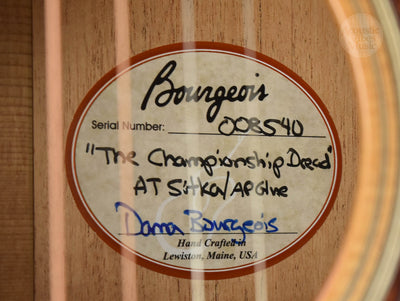 Acoustic
Vibes
Music
Bourgeois
Serial Number: 008540
"The Championship Dread"
AT Sitka/AP Glue
Dana Bourgeois
Hand Crafted in
Lewiston, Maine, USA